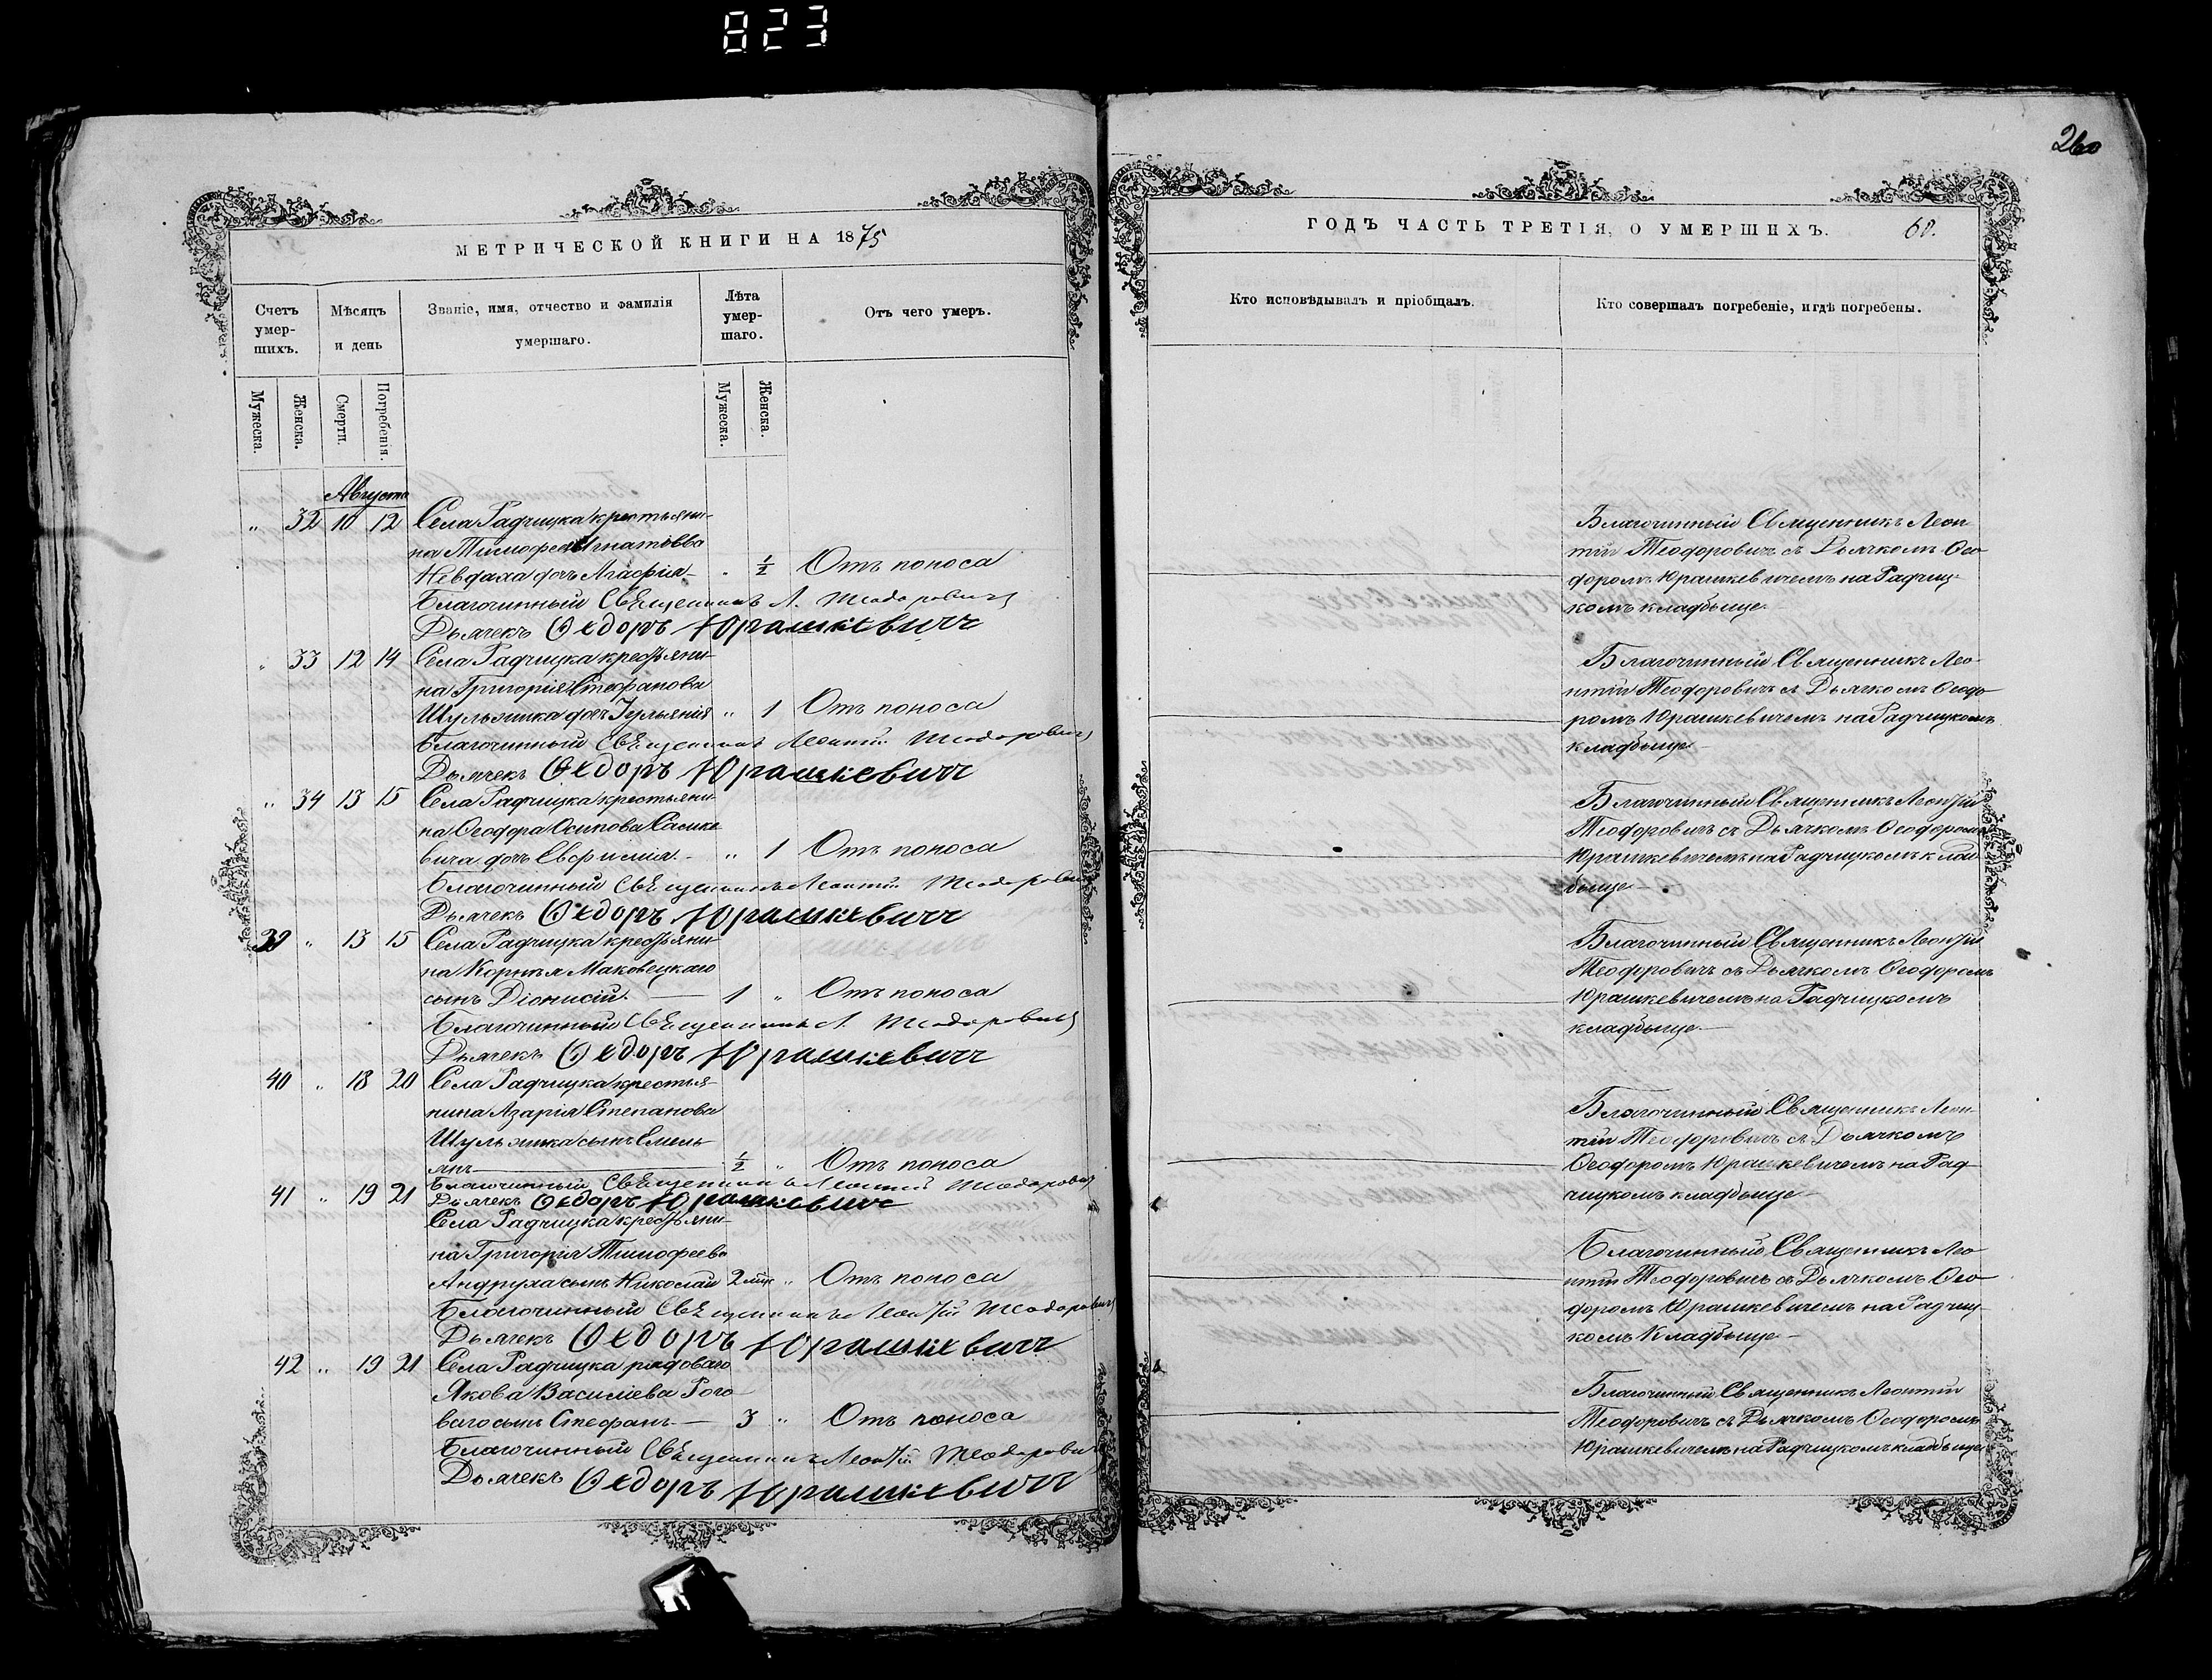 823
МЕТРИЧЕСКОЙ КНИГИ НА 1875
Счетъ умер-шихъ.
Мѣсяцъ и день
Званіе, имя, отчество и фамилія умершаго.
Лѣта умер-шаго.
Отъ чего умеръ.
Мужеска.
Женска.
Смерти.
Погребенія.
Мужеска.
Женска.
Августа
" 32 10 12 Села Радчицка крестьяни-
на Тимофея Игнатьева
Невдаха дочь Агафія - . ½ Отъ поноса
Благочинный Священникъ Л. Теодоровичъ
Дьячекъ Ѳедоръ Юрашкевичъ
" 33 12 14 Села Радчицка крестьяни-
на Григорія Стефанова
Шульжика дочь Іульянія " 1 Отъ поноса
Благочинный Священникъ Леонтій Теодоровичъ
Дьячекъ Ѳедоръ Юрашкевичъ
" 34 13 15 Села Радчицка крестьяни-
на Ѳеодора Осипова
вича дочь Евфимія. - " 1 Отъ поноса
Благочинный Священникъ Леонтій Теодоровичъ
Дьячекъ Ѳедоръ Юрашкевичъ
39 " 13 15 Села Радчицка крестьяни-
на Корнея Маковецкаго
сынъ Діонисій. - 1 " Отъ поноса
Благочинный Священникъ Л. Теодоровичъ
Дьячекъ Ѳедоръ Юрашкевичъ
40 " 18 20 Села Радчицка крестья-
нина Азарія Степанова
Шульжика сынъ Емель-
янъ - ½ " Отъ поноса
Благочинный Священникъ Леонтій Теодоровичъ
Дьячекъ Ѳедоръ Юрашкевичъ
41 " 19 21 Села Радчицка крестьяни-
на Григорія Тимофеева
Андруха сынъ Николай 2 мѣс " Отъ поноса
Благочинный Священникъ Леонтій Теодоровичъ
Дьячекъ Ѳедоръ Юрашкевичъ
42 " 19 21 Села Радчицка рядоваго
Якова Василіева Рого
ваго сынъ Стефанъ - 3 " Отъ поноса
Благочинный Священникъ Леонтій Теодоровичъ
Дьячекъ Ѳедоръ Юрашкевичъ
260
ГОДЪ ЧАСТЬ ТРЕТІЯ, О УМЕРШИХЪ. 60.
Кто исповѣдывалъ и пріобщалъ.
Кто совершалъ погребеніе, и гдѣ погребены.
Благочинный Священникъ Леон
тій Теодоровичъ съ Дьячкомъ Ѳео
доромъ Юрашкевичемъ на Радчиц-
комъ кладбыще. -
Благочинный Священникъ Лео-
нтій Теодоровичъ съ Дьячкомъ Ѳеодо
ромъ Юрашкевичемъ на Радчицкомъ
кладбыще -
Благочинный Священникъ Леонтій
Теодоровичъ съ Дьячкомъ Ѳеодоромъ
Юрашкевичемъ на Радчицкомъ клад
быще -
Благочинный Священникъ Леонтій
Теодоровичъ съ Дьячкомъ Ѳеодоромъ
Юрашкевичемъ на Радчицкомъ
кладбыще. -
Благочинный Священникъ Леон-
тій Теодоровичъ съ Дьячкомъ
Ѳеодоромъ Юрашкевичемъ на Рад-
чицкомъ кладбыще -
Благочинный Священникъ Лео
нтій Теодоровичъ съ Дьячкомъ Ѳео-
доромъ Юрашкевичемъ на Радчиц-
комъ Кладбыще -
Благочинный Священникъ Леонтій
Теодоровичъ съ Дьячкомъ Ѳеодоромъ
Юрашкевичемъ на Радчицкомъ кладбыще